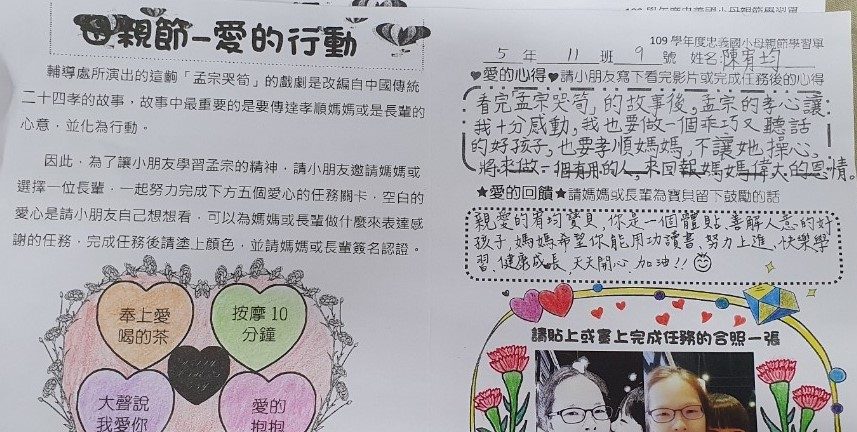 母親節－愛的行動
輔導處所演出的這齣「孟宗哭筍」的戲劇是改編自中國傳統
二十四孝的故事，故事中最重要的是要傳達孝順媽媽或是長輩的
心意，並化為行動。
因此，為了讓小朋友學習孟宗的精神，請小朋友邀請媽媽或
選擇一位長輩，一起努力完成下方五個愛心的任務關卡，空白的
愛心是請小朋友自己想想看，可以為媽媽或長輩做什麼來表達感
謝的任務，完成任務後請塗上顏色，並請媽媽或長輩簽名認證。
奉上愛
喝的茶
按摩 10
分鐘
大聲說
我愛你
愛的
抱抱
109 學年度忠義國小母親節學習單
5 年 11 班 9 號 姓名陳宥均
♥愛的心得♥請小朋友寫下看完影片或完成任務後的心得
看完「孟宗哭筍」的故事後，孟宗的孝心讓
我十分感動，我也要做一個乖巧又聽話
的好孩子，也要孝順媽媽，不讓她操心，
將來做一個有用的人，來回報媽媽偉大的恩情。
★愛的回饋★請媽媽或長輩為寶貝留下鼓勵的話
親愛的宥均寶貝，你是一個體貼、善解人意的好
孩子，媽媽希望你能用功讀書、努力上進、快樂學
習、健康成長，天天開心，加油!!
請貼上或畫上完成任務的合照一張